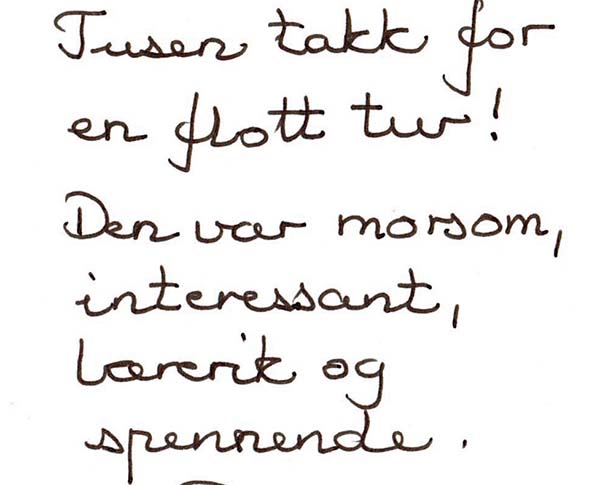 Tusen takk for
en flott tur!
Den var morsom,
interessant,
lærerik og
spennende.